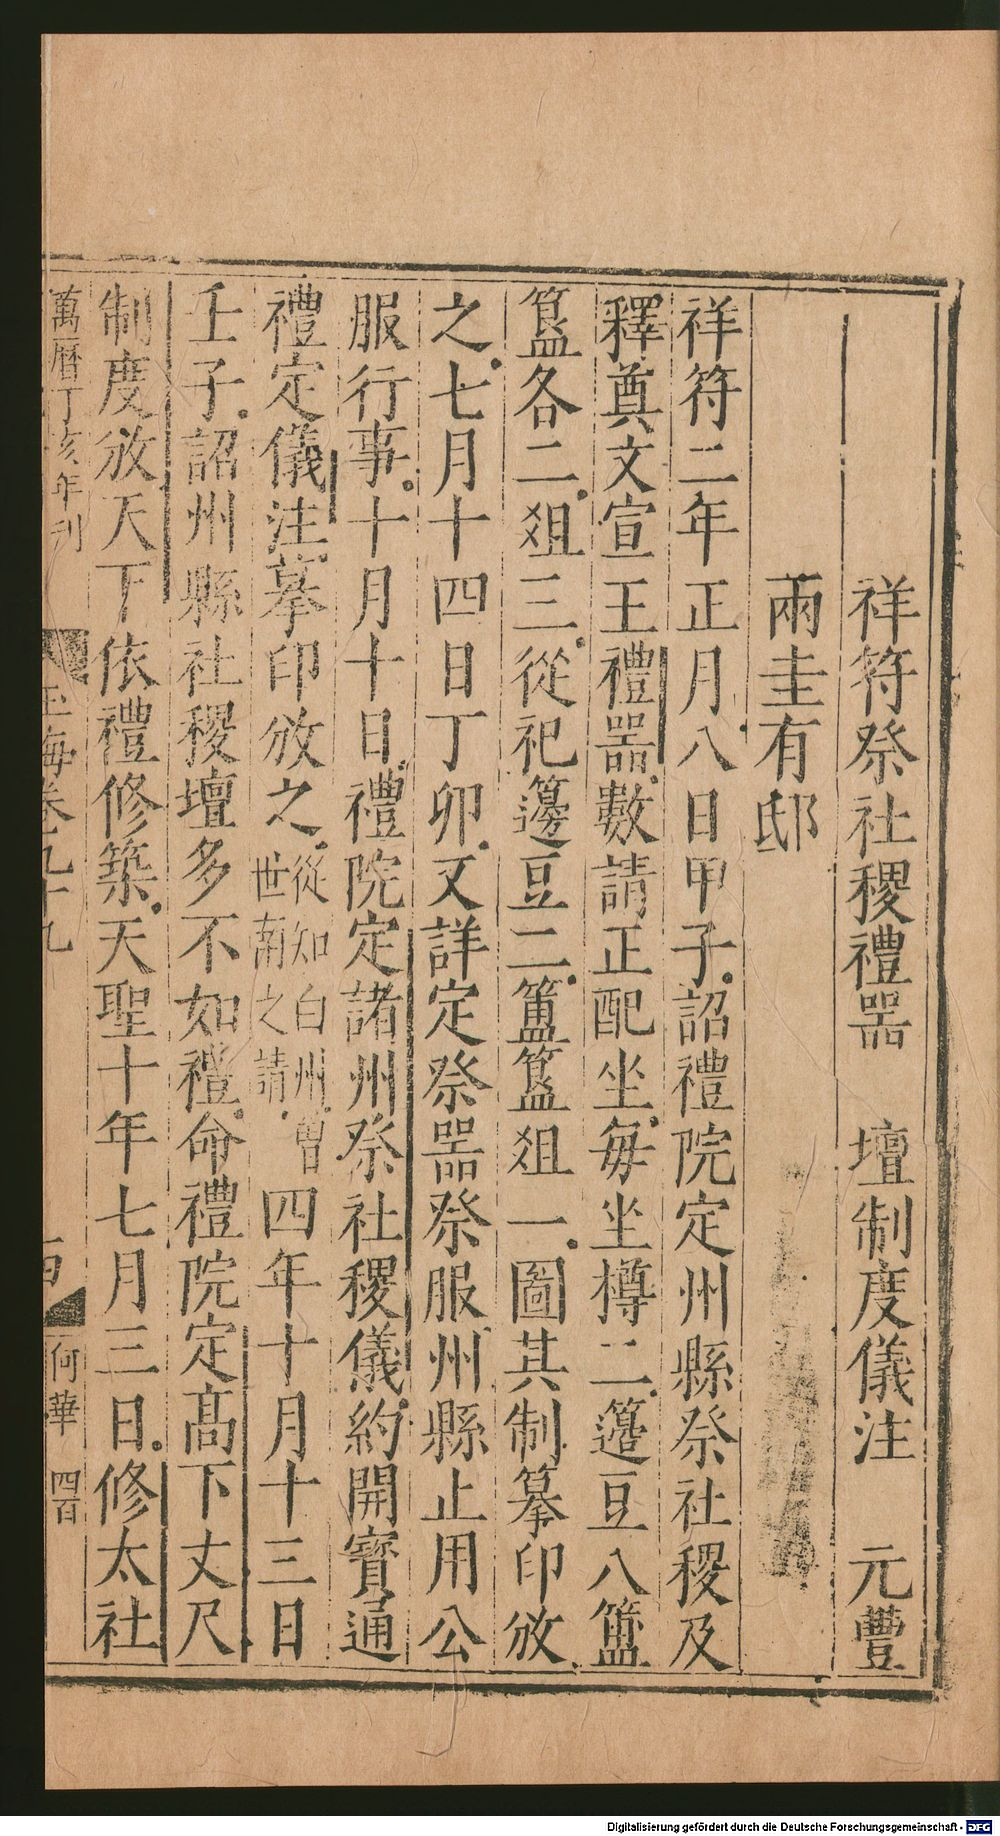 祥符祭社稷禮器　壇制度儀注　元豐
兩圭有邸
祥符二年正月八日甲子詔禮院定州縣祭社稷及
釋奠文宣王禮器數請正配坐每坐樽二籩豆八簠
簋各二俎三從祀籩豆二簠簋俎一圖其制摹印放
之七月十四日丁卯又詳定祭器祭服州縣止用公
服行事十月十日禮院定諸州祭社稷儀約開寶通
禮定儀注摹印放之從知白州曾世南之請四年十月十三日
壬子詔州縣社稷壇多不如禮命禮院定高下丈尺
制度放天下依禮修築天聖十年七月三日修太社
萬曆丁亥年刊
玉海卷九十九
何華
四百
Digitalisierung gefördert durch die Deutsche Forschungsgemeinschaft - DFG